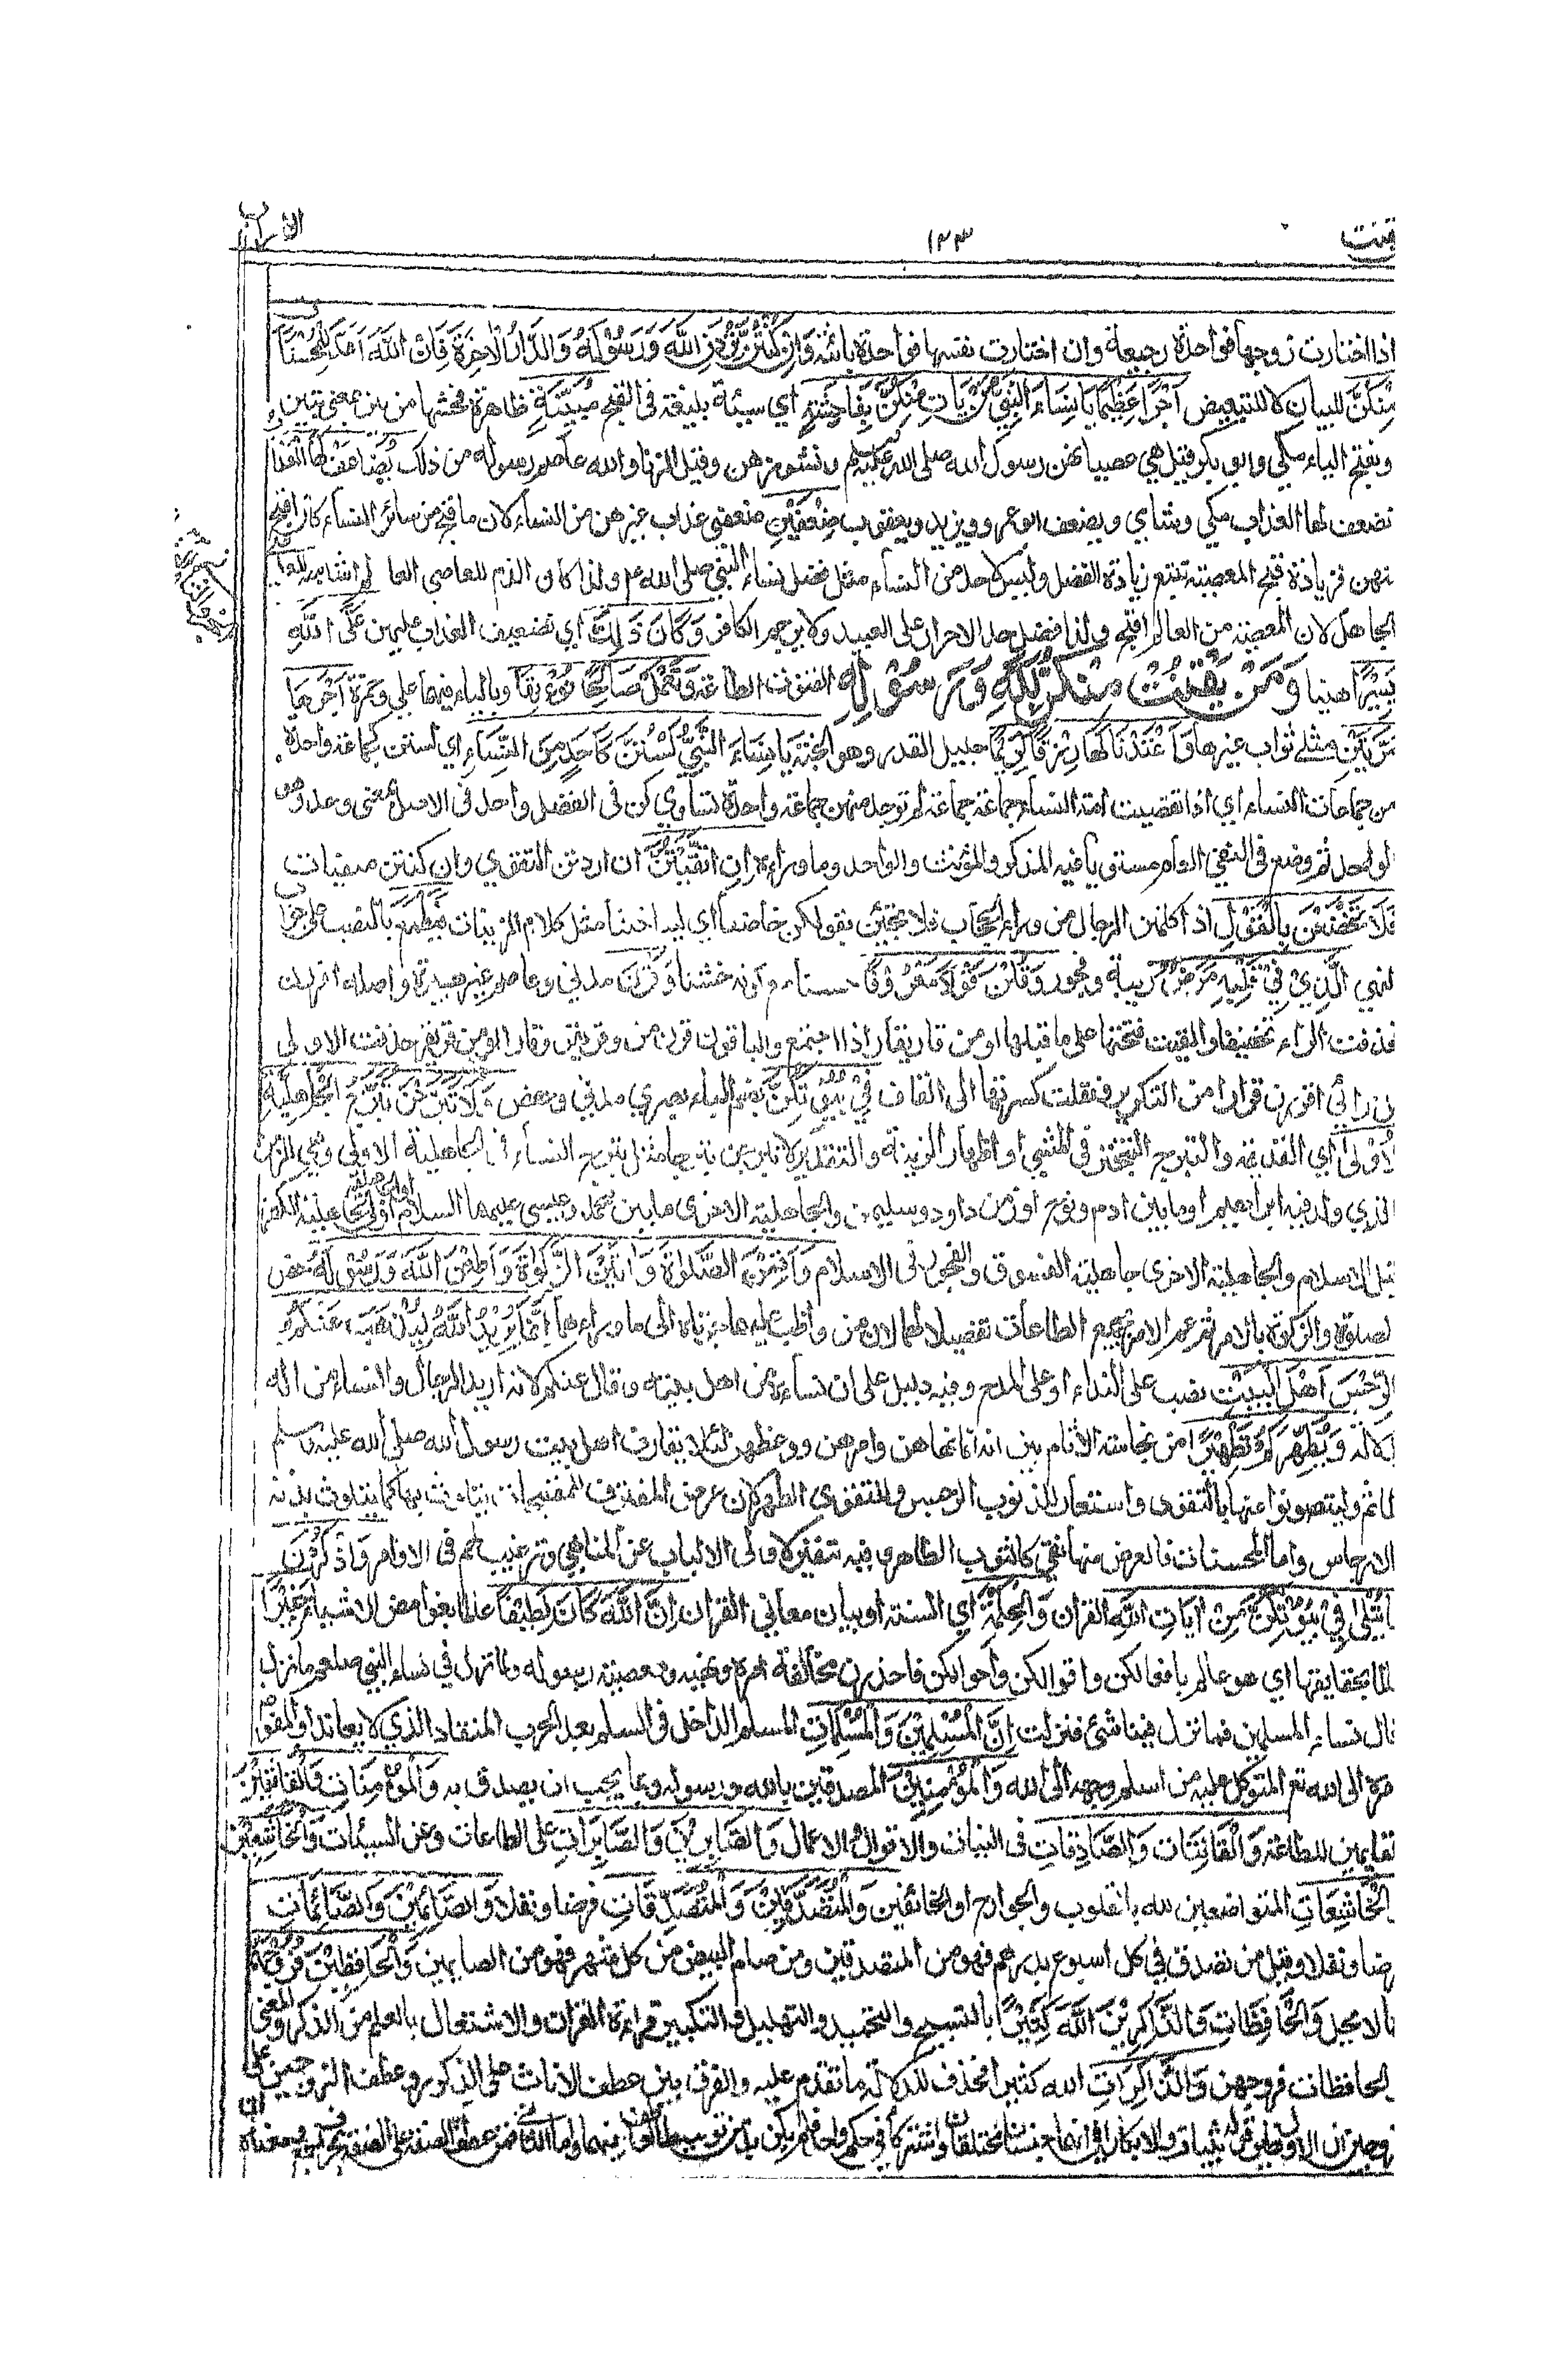 يقنت ١٢٣ الاحزاب
اذا اختارت زوجها فواحدة رجيعة وان اختارت نفسها فواحدة بائنة وَاِنْ كُنْتُنَّ تُرِدْنَ اللّٰهَ وَرَسُوْلَهُ وَالدَّارَ الْاٰخِرَةَ فَاِنَّ اللّٰهَ اَعَدَّ لِلْمُحْسِنٰتِ
مِنْكُنَّ للبيان لا للتبعيض اَجْرًا عَظِيْمًا يَا نِسَاءَ النَّبِيِّ مَنْ يَاْتِ مِنْكُنَّ بِفَاحِشَةٍ اي سيئة بليغة في القبح مُبَيِّنَةٍ ظاهرة فحشها من بين بمعنى تبين
وبفتح الياء مكي وابو بكر قيل هي عصيانهن رسول الله صلى الله عليه وسلم ونشوزهن وقيل الزنا والله عاصم رسوله من ذلك يُضَاعَفْ لَهَا الْعَذَابُ
نضعف لها العذاب مكي وشامي ويضعف ابو عمرو ويزيد ويعقوب ضِعْفَيْنِ ضعفي عذاب غيرهن من النساء لان ما قبح من سائر النساء كان اقبح
منهن فزيادة قبح المعصية تتبع زيادة الفضل وليس لاحد من النساء مثل فضل نساء النبي صلى الله عم ولذا كان الذم للعاصي العالم اشد منه للعاصي
الجاهل لان المعصية من العالم اقبح ولذا فضل حد الاحرار على العبيد ولا يرجم الكافر وَكَانَ ذٰلِكَ اي تضعيف العذاب عليهن عَلَى اللّٰهِ
يَسِيْرًا هينا وَمَنْ يَقْنُتْ مِنْكُنَّ لِلّٰهِ وَرَسُوْلِهِ القنوت الطاعة وَتَعْمَلْ صَالِحًا نُؤْتِهَا وبالياء فيهما علي وحمزة اَجْرَهَا
مَرَّتَيْنِ مثلي ثواب غيرها وَاَعْتَدْنَا لَهَا رِزْقًا كَرِيْمًا جليل القدر وهو الجنة يَا نِسَاءَ النَّبِيِّ لَسْتُنَّ كَاَحَدٍ مِنَ النِّسَاءِ اي لستن كجماعة واحدة
من جماعات النساء اي اذا تقصيت امة النساء جماعة جماعة لم توجد منهن جماعة واحدة تساويكن في الفضل واحد في الاصل بمعنى وحد وهو
الواحد ثم وضع في النفي العام مستويا فيه المذكر والمؤنث والواحد وما وراءه اِنِ اتَّقَيْتُنَّ ان اردتن التقوى وان كنتن متقيات
فَلَا تَخْضَعْنَ بِالْقَوْلِ اذا كلمتن الرجال من وراء الحجاب فلا تجئن بقولكن خاضعا اي لينا خنثا مثل كلام المريبات فَيَطْمَعَ بالنصب على جواب
النهي الَّذِيْ فِيْ قَلْبِهِ مَرَضٌ ريبة وفجور وَقُلْنَ قَوْلًا مَعْرُوْفًا حسنا مع كونه خشنا وَقَرْنَ مدني وعاصم غير هبيرة واصله اقررن
فحذفت الراء تخفيفا والقيت فتحتها على ما قبلها او من قار يقار اذا اجتمع والباقون قرن من وقر يقر وقارا او من قر يقر حذفت الاولى
من رائي اقررن قرارا من التكرير فنقلت كسرتها الى القاف فِيْ بُيُوْتِكُنَّ بضم الباء بصري مدني وحفص وَلَا تَبَرَّجْنَ تَبَرُّجَ الْجَاهِلِيَّةِ
الْاُوْلٰى اي القديمة والتبرج التبختر في المشي او اظهار الزينة والتقدير ولا تبرجن تبرجا مثل تبرج النساء في الجاهلية الاولى وهي الزمان
الذي ولد فيه ابراهيم او ما بين ادم ونوح او زمن داود وسليمن والجاهلية الاخرى ما بين محمد وعيسى عليهما السلام او الجاهلية الاولى جاهلية الكفر
قبل الاسلام والجاهلية الاخرى جاهلية الفسوق والفجور في الاسلام وَاَقِمْنَ الصَّلٰوةَ وَاٰتِيْنَ الزَّكٰوةَ وَاَطِعْنَ اللّٰهَ وَرَسُوْلَهُ خص
الصلوة والزكوة بالامر ثم عمم الامر بجميع الطاعات تفضيلا لهما لان من واظب عليهما جرتاه الى ما وراءهما اِنَّمَا يُرِيْدُ اللّٰهُ لِيُذْهِبَ عَنْكُمُ
الرِّجْسَ اَهْلَ الْبَيْتِ نصب على النداء او على المدح وفيه دليل على ان نساءه من اهل بيته وقال عنكم لانه اريد الرجال والنساء من اله
بدلالة وَيُطَهِّرَكُمْ تَطْهِيْرًا من نجاسة الاثام بين انه انما نهاهن وامرهن ووعظهن لئلا يقارف اهل بيت رسول الله صلى الله عليه وسلم
المآثم وليتصونوا عنها بالتقوى واستعار للذنوب الرجس وللتقوى الطهر لان عرض المقترف للمقبحات يتلوث بها كما يتلوث بدنه
بالارجاس واما المحسنات فالعرض منها نقي كالثوب الطاهر وفيه تنفير لاولى الالباب عن المناهي وترغيب لهم في الاوامر وَاذْكُرْنَ
مَا يُتْلٰى فِيْ بُيُوْتِكُنَّ مِنْ اٰيَاتِ اللّٰهِ القران وَالْحِكْمَةِ اي السنة او بيان معاني القران اِنَّ اللّٰهَ كَانَ لَطِيْفًا عالما بغوامض الاشياء خَبِيْرًا
عالما بحقايقها اي هو عالم بافعالكن واقوالكن واحوالكن فاحذرن مخالفة امره ونهيه ومعصية رسوله ولما نزل في نساء النبي صلعم ما نزل
قال نساء المسلمين فما نزل فينا شئ فنزلت اِنَّ الْمُسْلِمِيْنَ وَالْمُسْلِمَاتِ المسلم الداخل في السلم بعد الحرب المنقاد الذي لا يعاند او المفوض
امره الى الله تع المتوكل عليه من اسلم وجهه الى الله وَالْمُؤْمِنِيْنَ المصدقين بالله ورسوله وبما يجب ان يصدق به وَالْمُؤْمِنَاتِ وَالْقَانِتِيْنَ
القايمين للطاعة وَالْقَانِتَاتِ وَالصَّادِقَاتِ في النيات والاقوال والاعمال وَالصَّابِرِيْنَ وَالصَّابِرَاتِ على الطاعات وعن السيئات وَالْخَاشِعِيْنَ
وَالْخَاشِعَاتِ المتواضعين لله بالقلوب والجوارح او الخائفين وَالْمُتَصَدِّقِيْنَ وَالْمُتَصَدِّقَاتِ فرضا ونفلا وَالصَّائِمِيْنَ وَالصَّائِمَاتِ
فرضا ونفلا وقيل من تصدق في كل اسبوع بدرهم فهو من المتصدقين ومن صام البيض من كل شهر فهو من الصايمين وَالْحَافِظِيْنَ فُرُوْجَهُمْ
عما لا يحل وَالْحَافِظَاتِ وَالذَّاكِرِيْنَ اللّٰهَ كَثِيْرًا بالتسبيح والتحميد والتهليل والتكبير وقراءة القران والاشتغال بالعلم من الذكر والمعنى
والحافظات فروجهن وَالذَّاكِرَاتِ الله كثيرا فحذف لدلالة ما تقدم عليه والفرق بين عطف الاناث على الذكور وعطف الزوجين على
الزوجين ان الاول نظير قوله ثيبات وابكارا في انهما جنسان مختلفان واشتركا في حكم واحد فلم يكن بد من توسيط العاطف بينهما واما الثاني فمن عطف الصفة على الصفة بحرف الجمع ومعناه ان